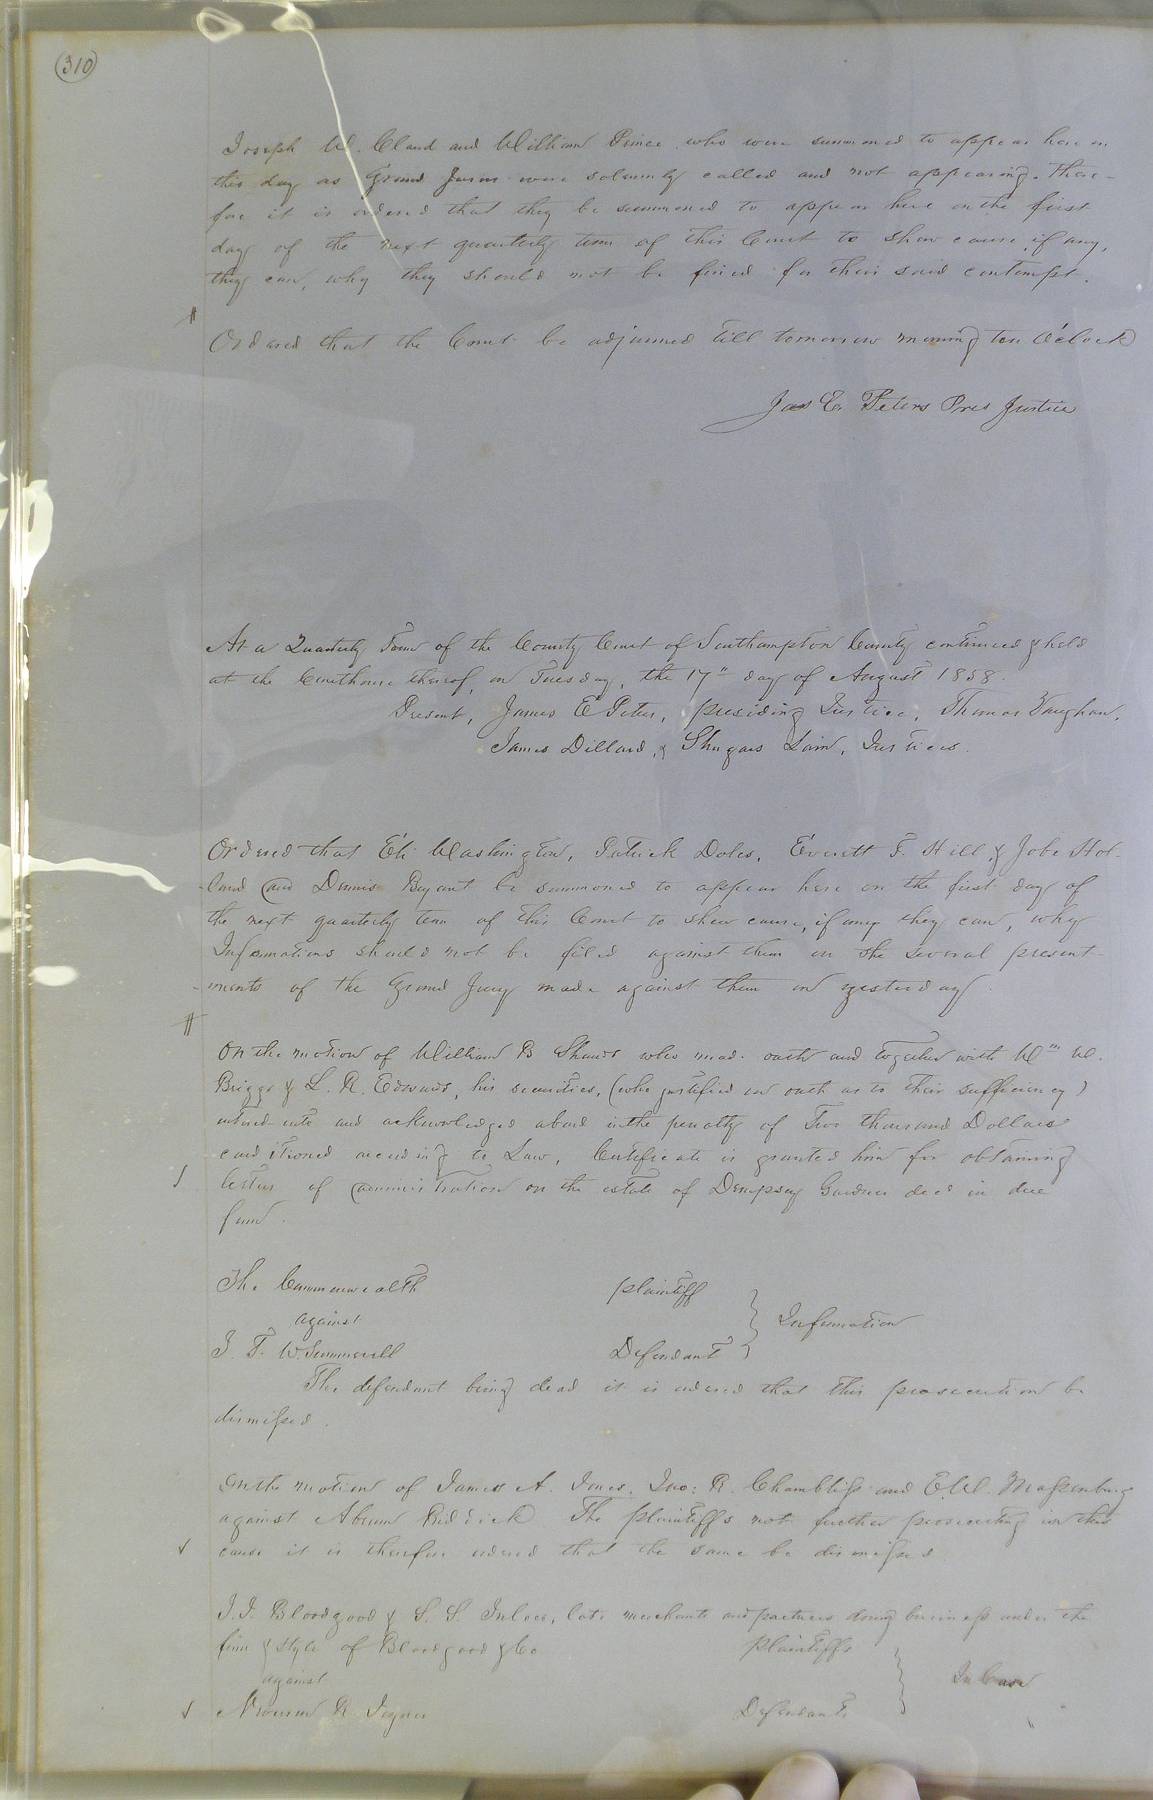 310
Joseph W. Claud and William Prince who were summoned to appear here on
this day as Grand Jurors were solemnly called and not appearing. There-
fore it is ordered that they be summoned to appear here on the first
day of the next quarterly term of this Court to show cause, if any,
they can, why they should not be fined for their said contempt.
Ordered that the Court be adjourned till tomorrow morning ten O'clock
Jas E. Peters Pres Justice
At a Quarterly Term of the County Court of Southampton County continued & held
at the Courthouse thereof, on Tuesday, the 17" day of August 1858.
Present, James E Peters, presiding Justice, Thomas Vaughan,
James Dillard, & Shugars Lain, Justices.
Ordered that Eli Washington, Patrick Doles, Everett F. Hill, & Jobe Hol-
land and Dennis Bryant be summoned to appear here on the first day of
the next quarterly term of this Court to shew cause, if any they can, why
Informations should not be filed against them on the several present-
ments of the Grand Jury made against them on yesterday.
On the motion of William B Shands who made oath and together with Wm W.
Briggs & L. R. Edwards, his securities, (who justified on oath as to their sufficiency)
entered into and acknowledged a bond in the penalty of Two thousand Dollars
conditioned according to Law, Certificate is granted him for obtaining
letters of administration on the estate of Dempsey Gardner decd in due
form.
The Commonwealth plaintiff
against } Information
J. F. W. Summerell Defendant
The defendant being dead it is ordered that this prosecution be
dismissed.
On the motion of James A. Jones, Jno: R. Chambliss and E. W. Massenburg
against Abram Riddick The plaintiffs not further prosecuting in this
cause it is therefore ordered that the same be dismissed
J. J. Bloodgood & S. S. late merchants and partners doing business under the
firm & style of Bloodgood & Co plaintiffs
against } In Case
R. Defendant